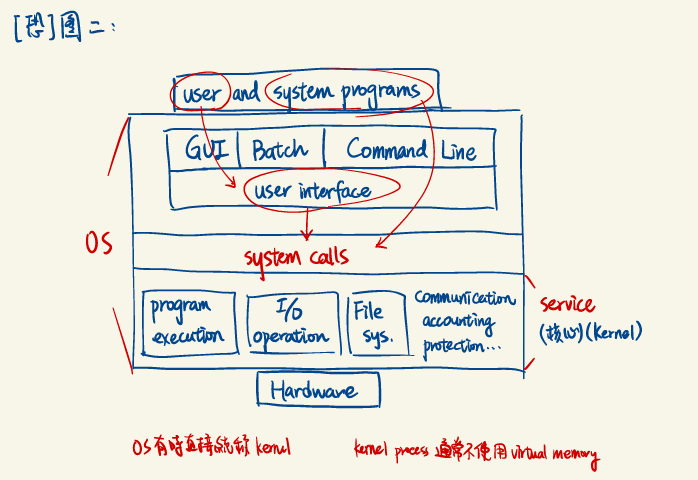 [恐]圖二:
user and system programs
GUI Batch Command Line
user interface
OS
system calls
program execution
I/O operation
File sys.
communication
accounting
protection...
service
(核心)(Kernel)
Hardware
OS有時直接統稱 kernel
kernel process 通常不使用 virtual memory